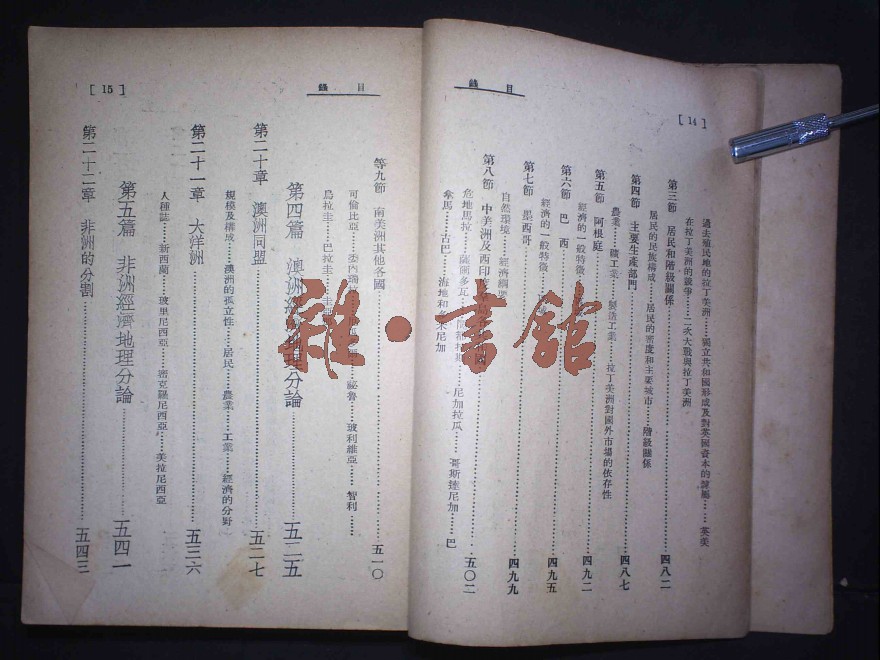 目錄
[ 14 ]
過去殖民地的拉丁美洲……獨立共和國形成及對英國資本的隸屬……英美
在拉丁美洲的競爭……二次大戰與拉丁美洲
第三節 居民和階級關係……四八二
居民的民族構成……居民的密度和主要城市……階級關係
第四節 主要生產部門……四八七
農業……礦工業……製造工業……拉丁美洲對國外市場的依存性
第五節 阿根庭……四九二
經濟的一般特徵
第六節 巴西……四九五
經濟的一般特徵
第七節 墨西哥……四九九
自然環境……經濟
第八節 中美洲及西印度……五〇二
危地馬拉……薩爾多瓦……尼加拉瓜……哥斯達尼加……巴
拿馬……古巴……海地和多米尼加
目錄
[ 15 ]
等九節 南美洲其他各國……五一〇
可倫比亞……委內瑞……秘魯……玻利維亞……智利……
烏拉圭……巴拉圭
第四篇 澳洲經濟地理分論……五二五
第二十章 澳洲同盟……五二七
規模及構成……澳洲的孤立性……居民……農業……工業……經濟的分野
第二十一章 大洋洲……五三六
人種誌……新西蘭……玻里尼西亞……密克羅尼西亞……美拉尼西亞
第五篇 非洲經濟地理分論……五四一
第二十二章 非洲的分割……五四三
雜·書館